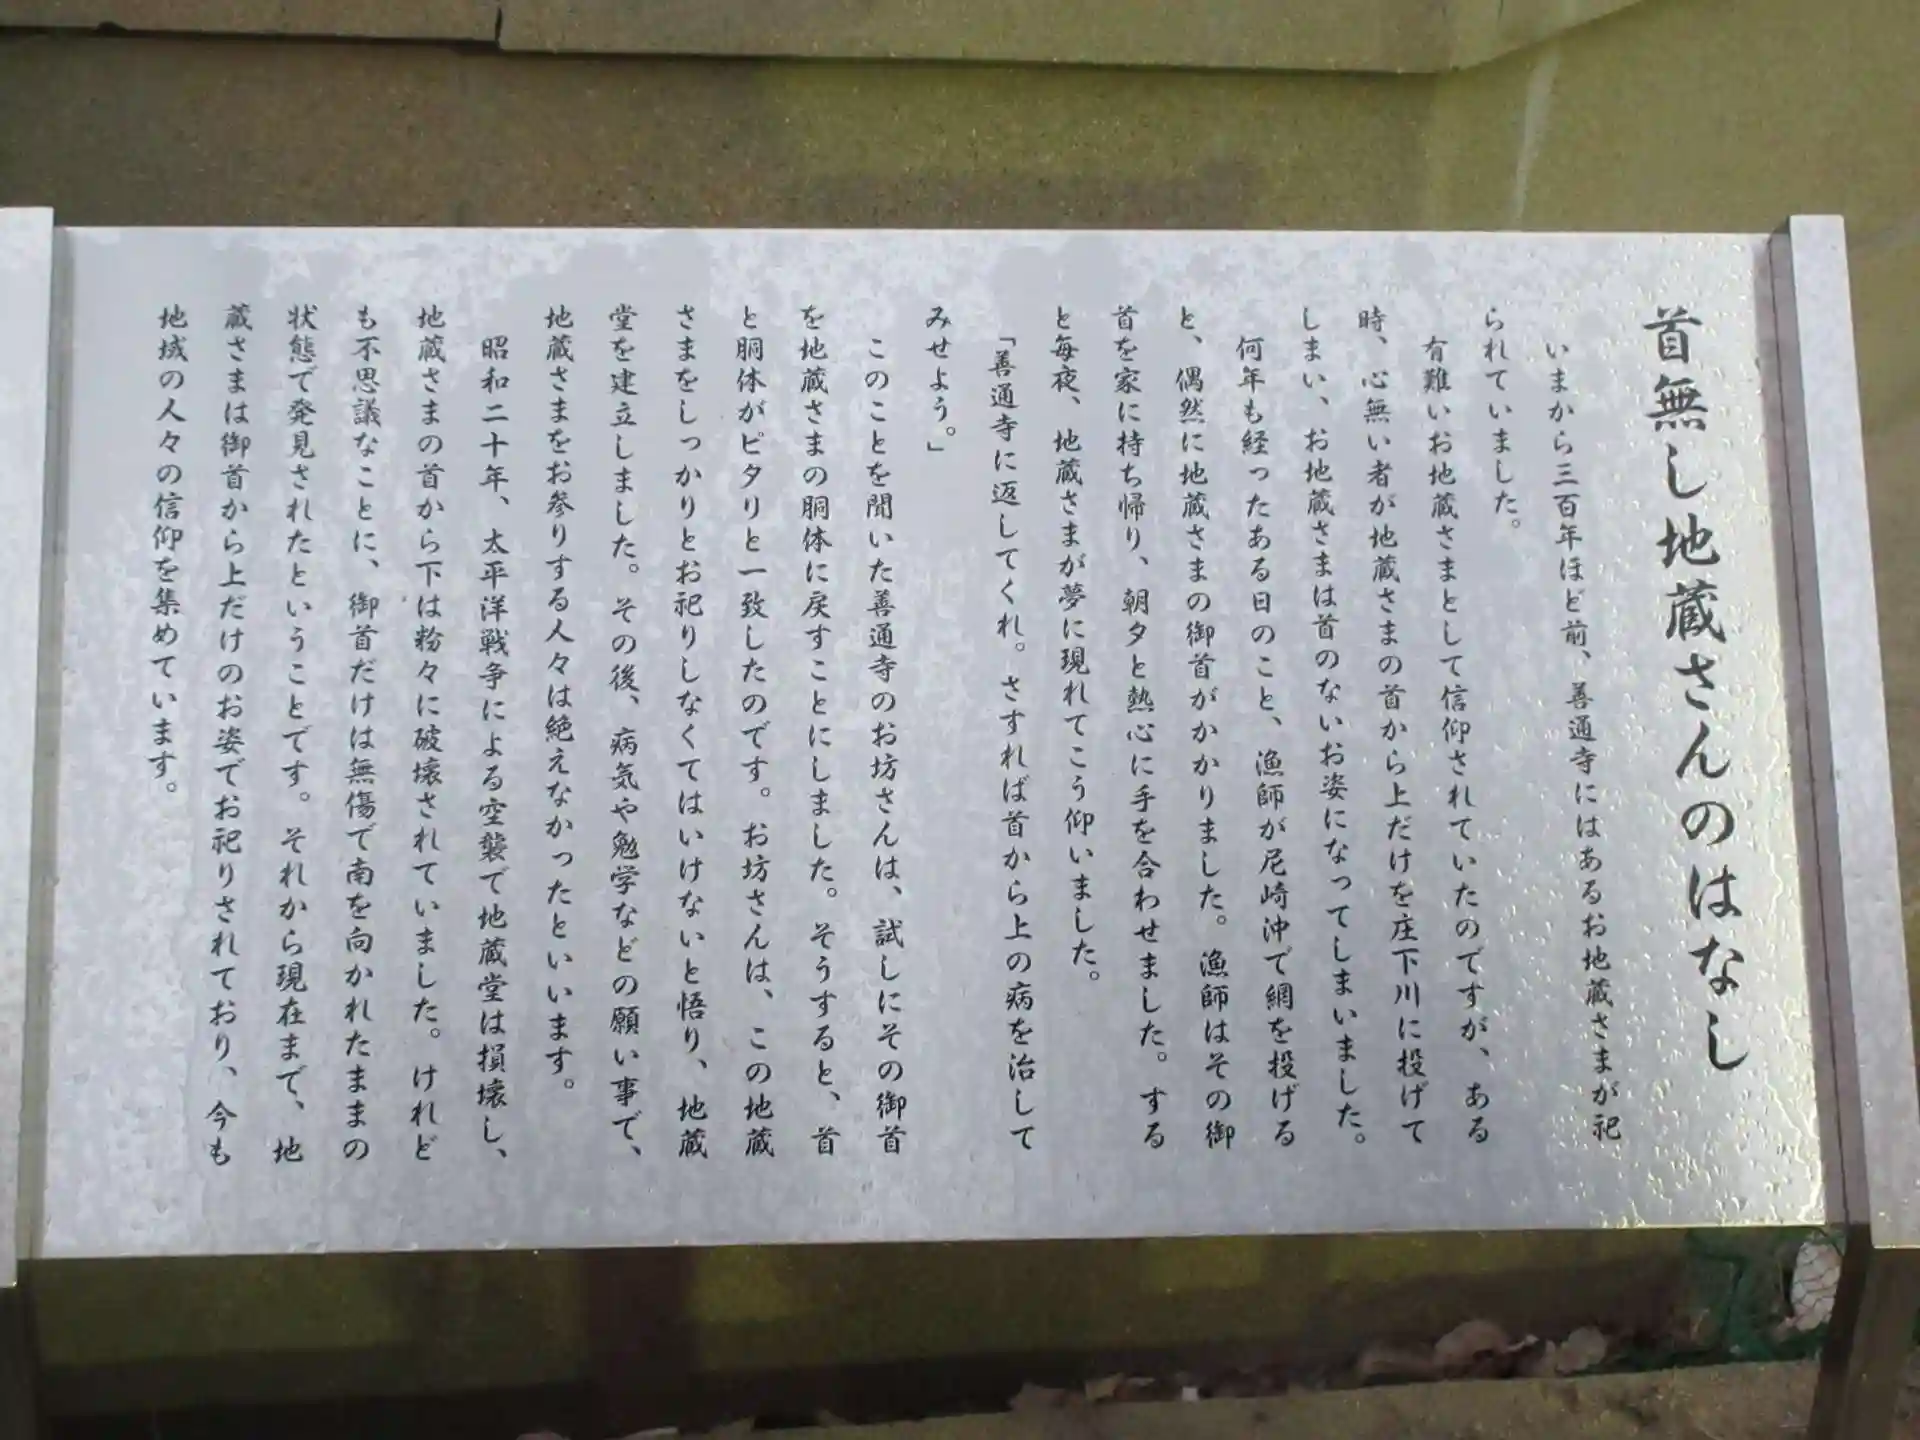 首無し地蔵さんのはなし
いまから三百年ほど前、善通寺にはあるお地蔵さまが祀
られていました。
有難いお地蔵さまとして信仰されていたのですが、ある
時、心無い者が地蔵さまの首から上だけを庄下川に投げて
しまい、お地蔵さまは首のないお姿になってしまいました。
何年も経ったある日のこと、漁師が尼崎沖で網を投げる
と、偶然に地蔵さまの御首がかかりました。漁師はその御
首を家に持ち帰り、朝夕と熱心に手を合わせました。する
と毎夜、地蔵さまが夢に現れてこう仰いました。
「善通寺に返してくれ。さすれば首から上の病を治して
みせよう。」
このことを聞いた善通寺のお坊さんは、試しにその御首
を地蔵さまの胴体に戻すことにしました。そうすると、首
と胴体がピタリと一致したのです。お坊さんは、この地蔵
さまをしっかりとお祀りしなくてはいけないと悟り、地蔵
堂を建立しました。その後、病気や勉学などの願い事で、
地蔵さまをお参りする人々は絶えなかったといいます。
昭和二十年、太平洋戦争による空襲で地蔵堂は損壊し、
地蔵さまの首から下は粉々に破壊されていました。けれど
も不思議なことに、御首だけは無傷で南を向かれたままの
状態で発見されたということです。それから現在まで、地
蔵さまは御首から上だけのお姿でお祀りされており、今も
地域の人々の信仰を集めています。